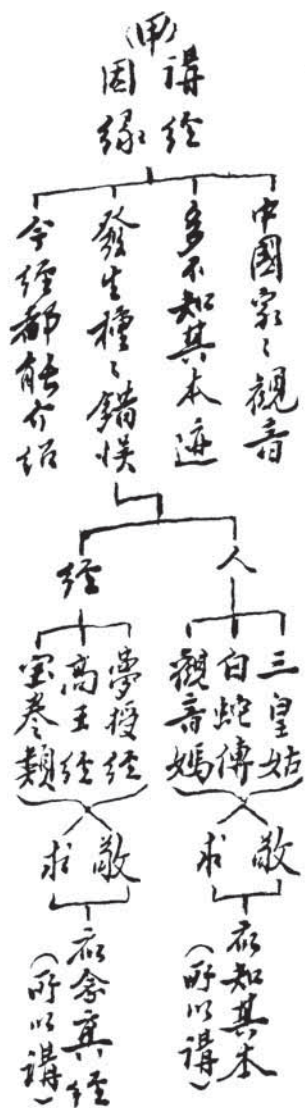 (甲)講經
因緣
中國家々觀音
多不知其本迹
發生種々錯悞
今經都能介紹
人
三皇姑
白蛇傳
觀音媽
敬
求
應知其本
(所以講)
經
夢授經
高王經
寶卷類
敬
求
應念真經
(所以講)